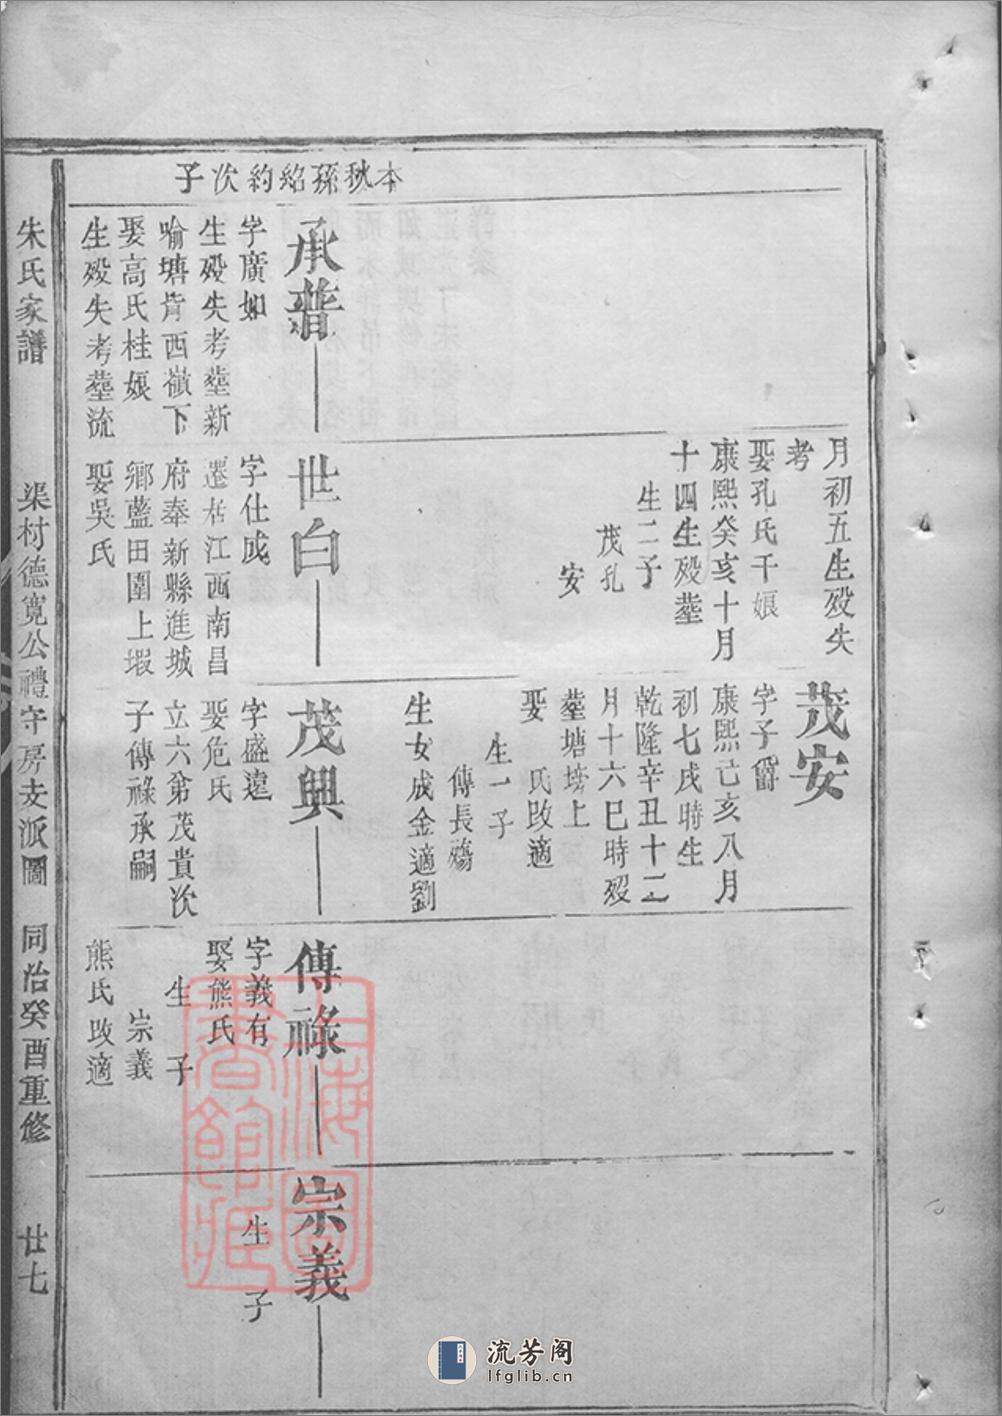 本秋孫紹約次子
月初五生歿失
考
娶孔氏千娘
康熙癸亥十月
十四生歿塟
生二子
茂孔
安
茂安
字子爵
康熙己亥八月
初七戌時生
乾隆辛丑十二
月十六巳時歿
塟塘塝上
娶 氏改適
生一子
傳長殤
生女成金適劉
承
字廣如
生歿失考塟新
喻塘肯西嶺下
娶高氏桂娘
生歿失考塟流
世白
字仕成
遷居江西南昌
府奉新縣進城
鄉藍田圍上塅
娶吳氏
茂興
字盛遠
娶危氏
立六第茂貴次
子傳祿承嗣
傳祿
字義有
娶熊氏
生 子
宗義
熊氏改適
宗義
生 子
朱氏家譜
渠村德寬公禮守房支派圖
同治癸酉重修
廿七
上海圖書館藏
流芳阁
lfglib.cn